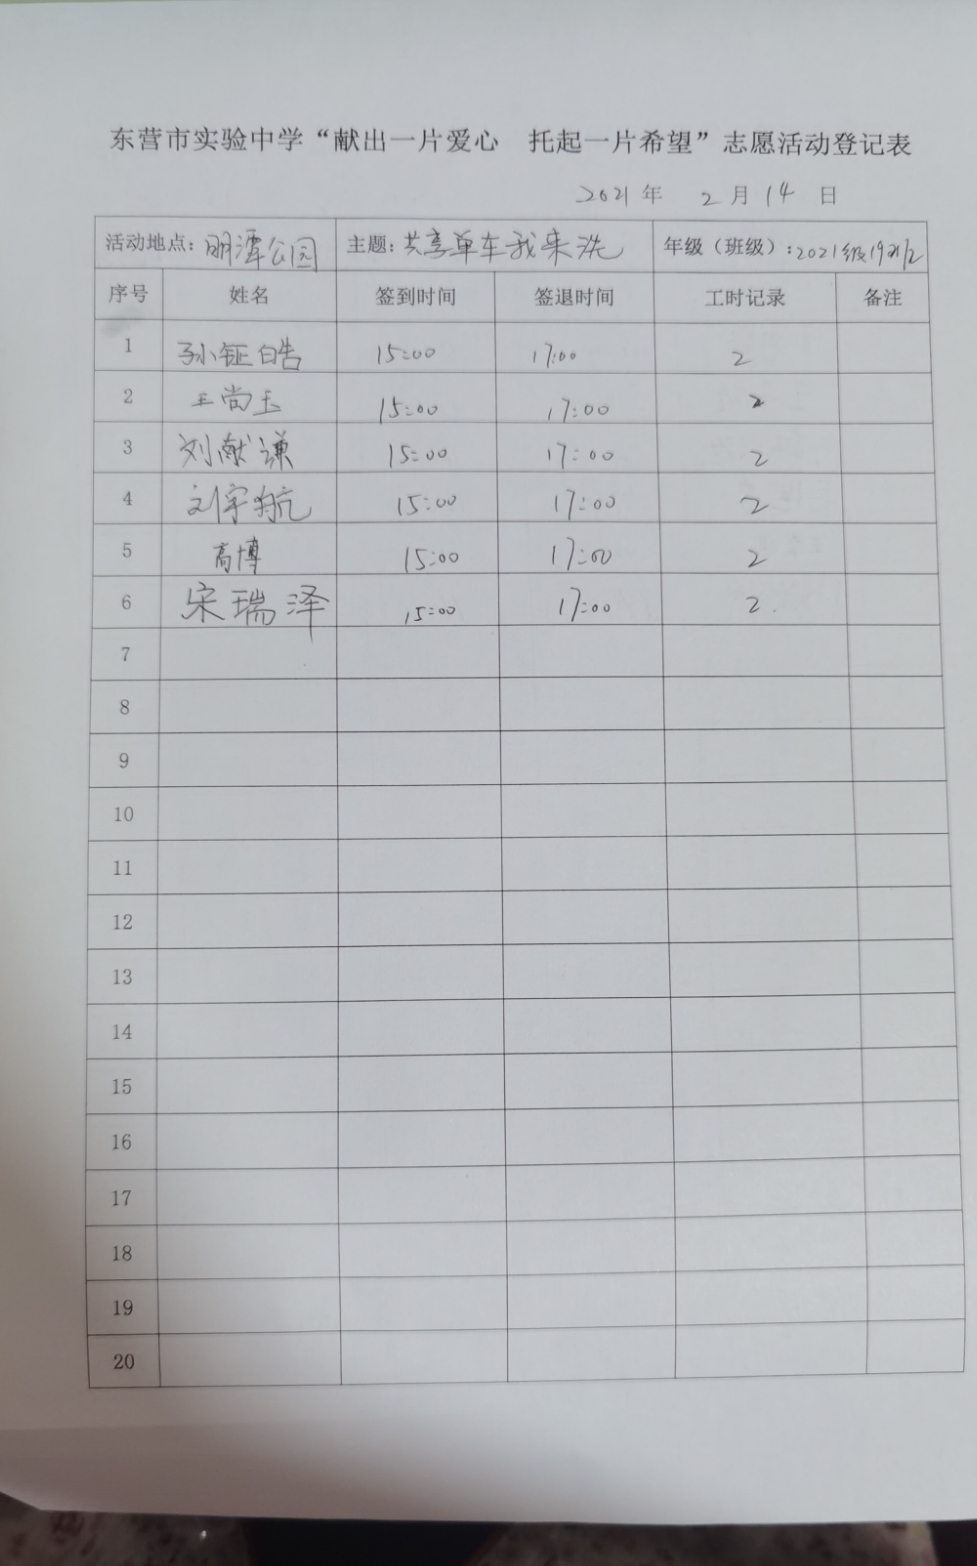 东营市实验中学“献出一片爱心 托起一片希望”志愿活动登记表
2021年 2月14日
活动地点：明潭公园 主题：共享单车我来洗 年级（班级）：2021级19班
序号 姓名 签到时间 签退时间 工时记录 备注
1 孙钲皓 15:00 17:00 2
2 王尚玉 15:00 17:00 2
3 刘献谦 15:00 17:00 2
4 刘宇航 15:00 17:00 2
5 高博 15:00 17:00 2
6 宋瑞泽 15:00 17:00 2
7
8
9
10
11
12
13
14
15
16
17
18
19
20